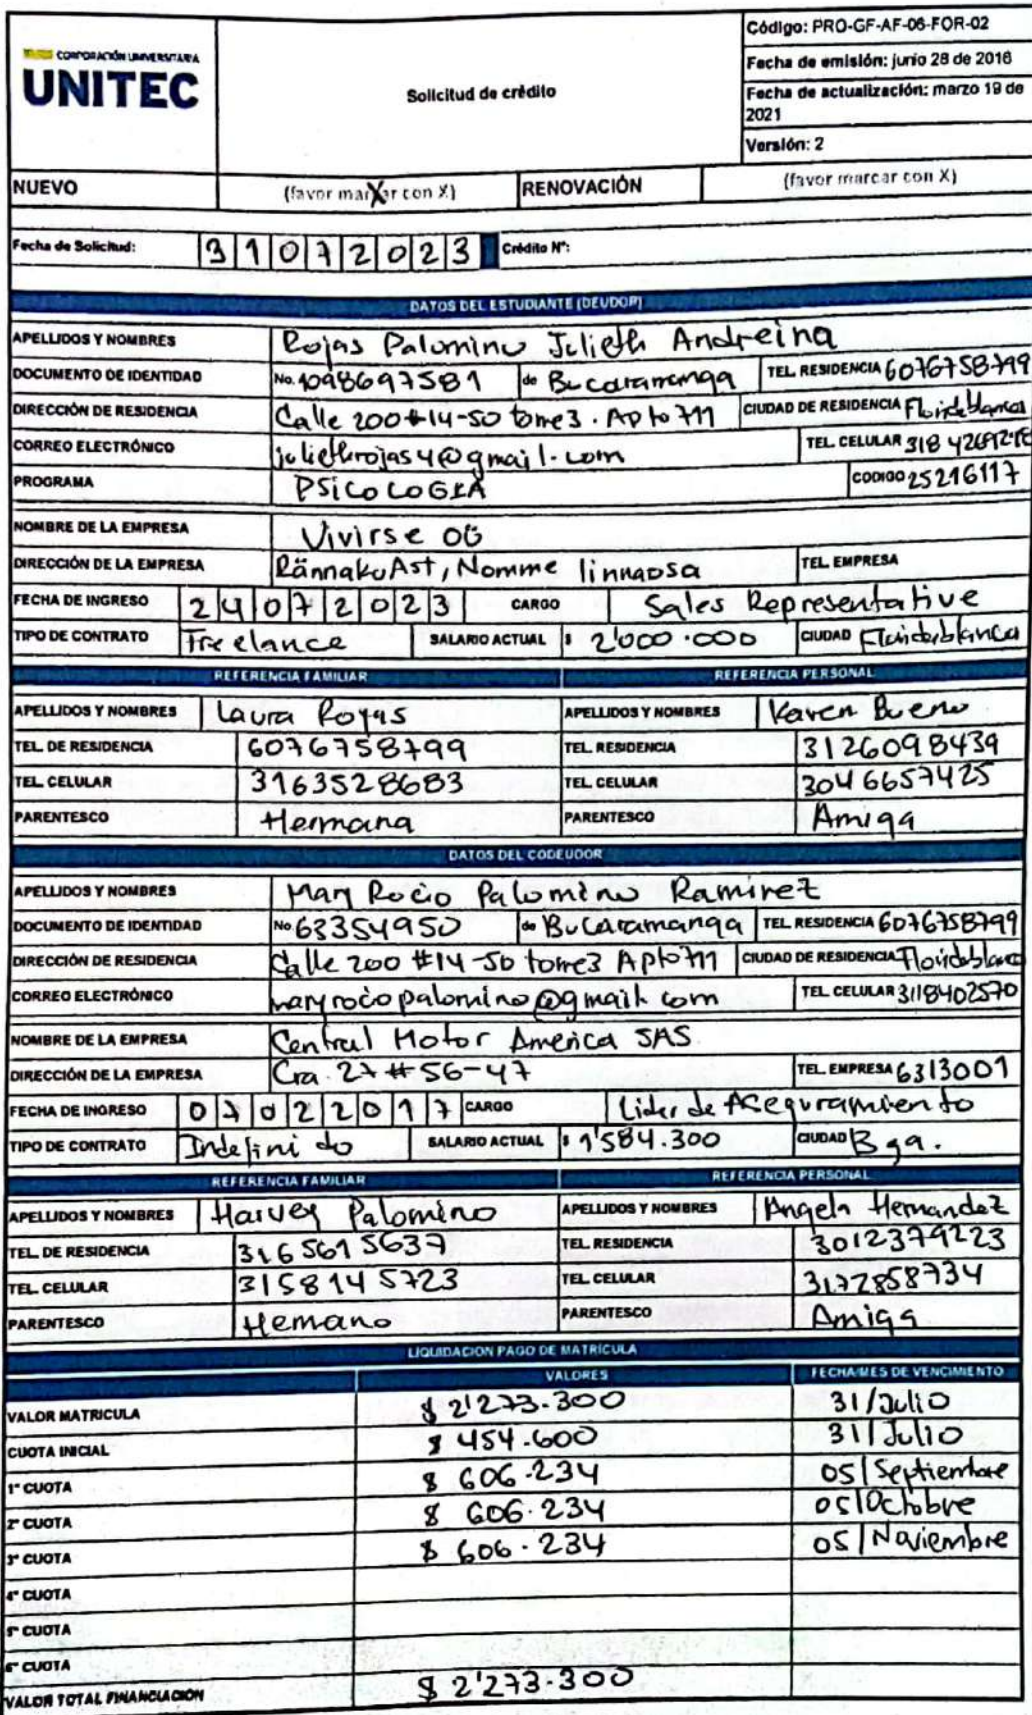 CORPORACIÓN UNIVERSITARIA
UNITEC
Solicitud de crédito
Código: PRO-GF-AF-06-FOR-02
Fecha de emisión: junio 28 de 2016
Fecha de actualización: marzo 19 de
2021
Versión: 2
NUEVO (favor marcar con X) X RENOVACIÓN (favor marcar con X)
Fecha de Solicitud: 31072023 Crédito N°:
DATOS DEL ESTUDIANTE (DEUDOR)
APELLIDOS Y NOMBRES Rojas Palomino Julieth Andreina
DOCUMENTO DE IDENTIDAD No. 1098697581 de Bucaramanga TEL. RESIDENCIA 6076758799
DIRECCIÓN DE RESIDENCIA Calle 200 #14-50 torre 3. Apto 711 CIUDAD DE RESIDENCIA Floridablanca
CORREO ELECTRÓNICO juliethrojas4@gmail.com TEL. CELULAR 318
PROGRAMA PSICOLOGIA CODIGO 25216117
NOMBRE DE LA EMPRESA Vivirse OG
DIRECCIÓN DE LA EMPRESA Rännaku Ast, Nomme linnaosa TEL. EMPRESA
FECHA DE INGRESO 24072023 CARGO Sales Representative
TIPO DE CONTRATO Freelance SALARIO ACTUAL $ 2'000.000 CIUDAD Floridablanca
REFERENCIA FAMILIAR REFERENCIA PERSONAL
APELLIDOS Y NOMBRES Laura Rojas APELLIDOS Y NOMBRES Karen Bueno
TEL. DE RESIDENCIA 6076758799 TEL. RESIDENCIA 3126098439
TEL. CELULAR 3163528683 TEL. CELULAR 3046657425
PARENTESCO Hermana PARENTESCO Amiga
DATOS DEL CODEUDOR
APELLIDOS Y NOMBRES Mary Rocio Palomino Ramirez
DOCUMENTO DE IDENTIDAD No. 63354950 de Bucaramanga TEL. RESIDENCIA 6076758799
DIRECCIÓN DE RESIDENCIA Calle 200 #14-50 torre3 Apto 711 CIUDAD DE RESIDENCIA Floridablanca
CORREO ELECTRÓNICO maryrociopalomino@gmail.com TEL. CELULAR 3118402570
NOMBRE DE LA EMPRESA Central Motor America SAS
DIRECCIÓN DE LA EMPRESA Cra. 27 # 56-47 TEL. EMPRESA 6313001
FECHA DE INGRESO 07022017 CARGO Lider de Aseguramiento
TIPO DE CONTRATO Indefinido SALARIO ACTUAL $ 1'584.300 CIUDAD Bga.
REFERENCIA FAMILIAR REFERENCIA PERSONAL
APELLIDOS Y NOMBRES Harvey Palomino APELLIDOS Y NOMBRES Angela Hernandez
TEL. DE RESIDENCIA 3165615637 TEL. RESIDENCIA 3012379223
TEL. CELULAR 3158145723 TEL. CELULAR 3172858734
PARENTESCO Hemano PARENTESCO Amiga
LIQUIDACION PAGO DE MATRICULA
VALORES FECHA/MES DE VENCIMIENTO
VALOR MATRICULA $ 2'273.300 31/Julio
CUOTA INICIAL $ 454.600 31/Julio
1° CUOTA $ 606.234 05/Septiembre
2° CUOTA $ 606.234 05/Octubre
3° CUOTA $ 606.234 05/Noviembre
4° CUOTA
5° CUOTA
6° CUOTA
VALOR TOTAL FINANCIACION $ 2'273.300